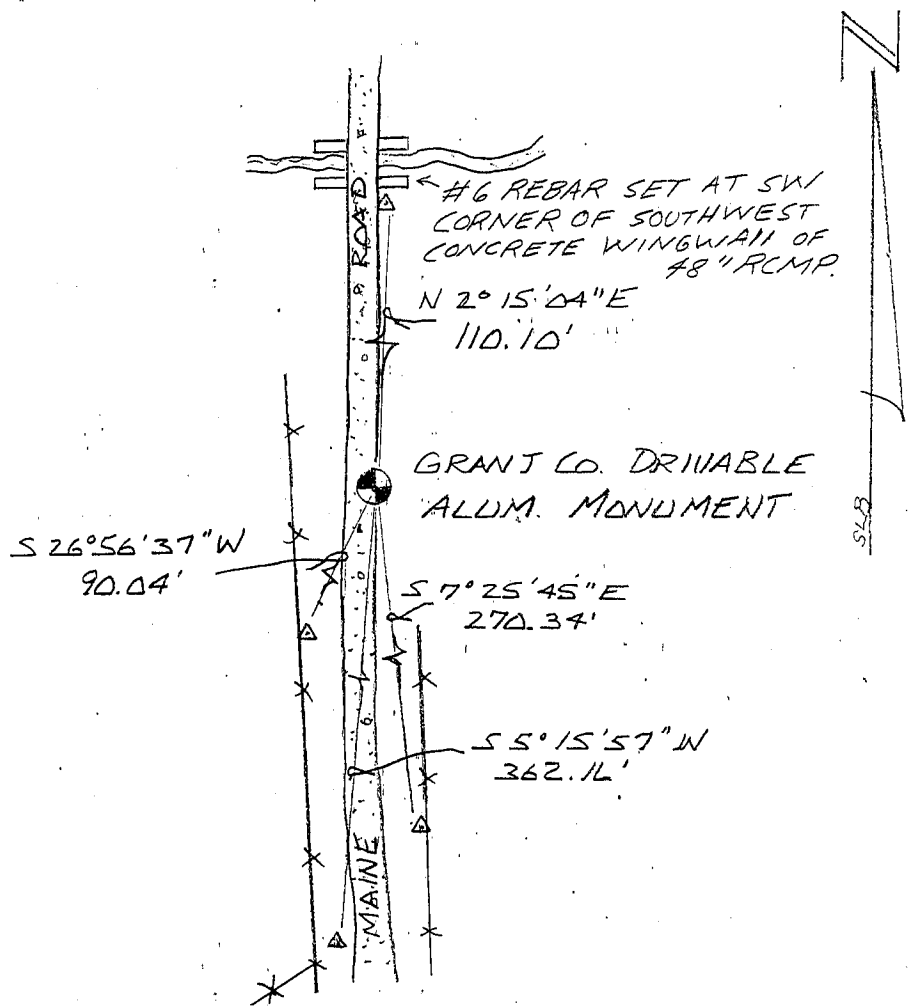 N
ROAD
#6 REBAR SET AT SW
CORNER OF SOUTHWEST
CONCRETE WINGWALL OF
48" RCMP.
N 2° 15' 04" E
110.10'
GRANT CO. DRIVABLE
ALUM. MONUMENT
SLB
S 26° 56' 37" W
90.04'
S 7° 25' 45" E
270.34'
S 5° 15' 57" W
MAINE